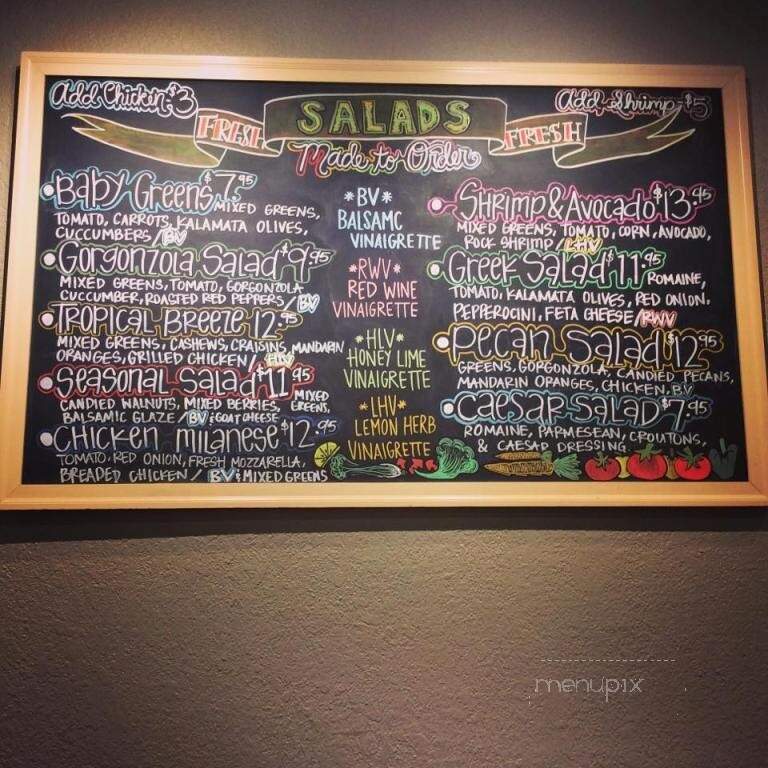 Add Chicken $3
FRESH
SALADS
FRESH
Add Shrimp $5
Made to Order
Baby Greens $7.95
MIXED GREENS,
TOMATO, CARROTS, KALAMATA OLIVES,
CUCCUMBERS / BV
Gorgonzola Salad $9.95
MIXED GREENS, TOMATO, GORGONZOLA
CUCCUMBER, ROASTED RED PEPPERS / BV
Tropical Breeze 12.95
MIXED GREENS, CASHEWS, CRAISINS, MANDARIN
ORANGES, GRILLED CHICKEN / HLV
Seasonal Salad $11.95
MIXED GREENS,
CANDIED WALNUTS, MIXED BERRIES,
BALSAMIC GLAZE / BV & GOAT CHEESE
Chicken Milanese $12.95
TOMATO, RED ONION, FRESH MOZZARELLA,
BREADED CHICKEN / BV & MIXED GREENS
*BV*
BALSAMC
VINAIGRETTE
*RWV*
RED WINE
VINAIGRETTE
*HLV*
HONEY LIME
VINAIGRETTE
*LHV*
LEMON HERB
VINAIGRETTE
Shrimp & Avocado $13.95
MIXED GREENS, TOMATO, CORN, AVOCADO,
ROCK SHRIMP / LHV
Greek Salad $11.95
ROMAINE,
TOMATO, KALAMATA OLIVES, RED ONION,
PEPPEROCINI, FETA CHEESE / RWV
Pecan Salad $12.95
GREENS, GORGONZOLA, CANDIED PECANS,
MANDARIN ORANGES, CHICKEN, BV
Caesar Salad $7.95
ROMAINE, PARMESEAN, CROUTONS,
& CAESAR DRESSING
menupix